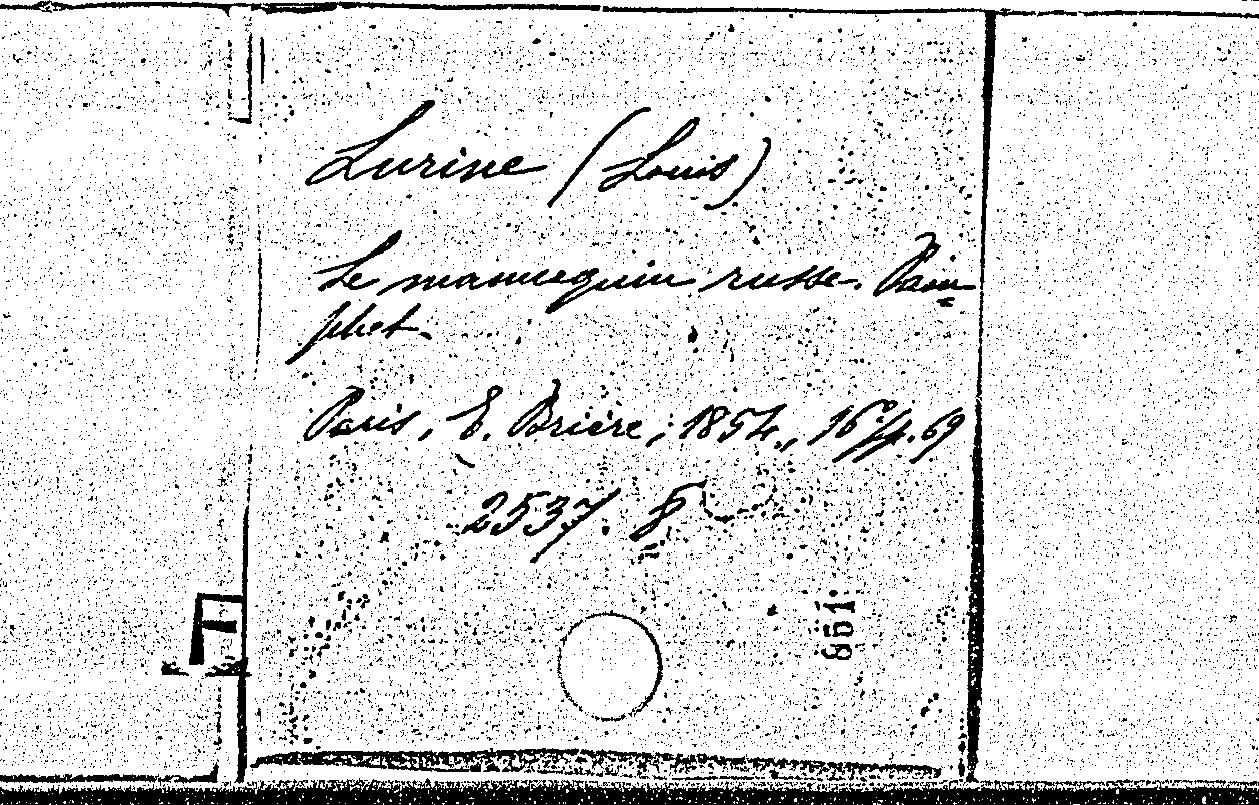 Lurine (Louis)
Le mannequin russe. Pam-
phlet.
Paris, E. Brière, 1854, 16° pp. 69
2537. 8
861
F